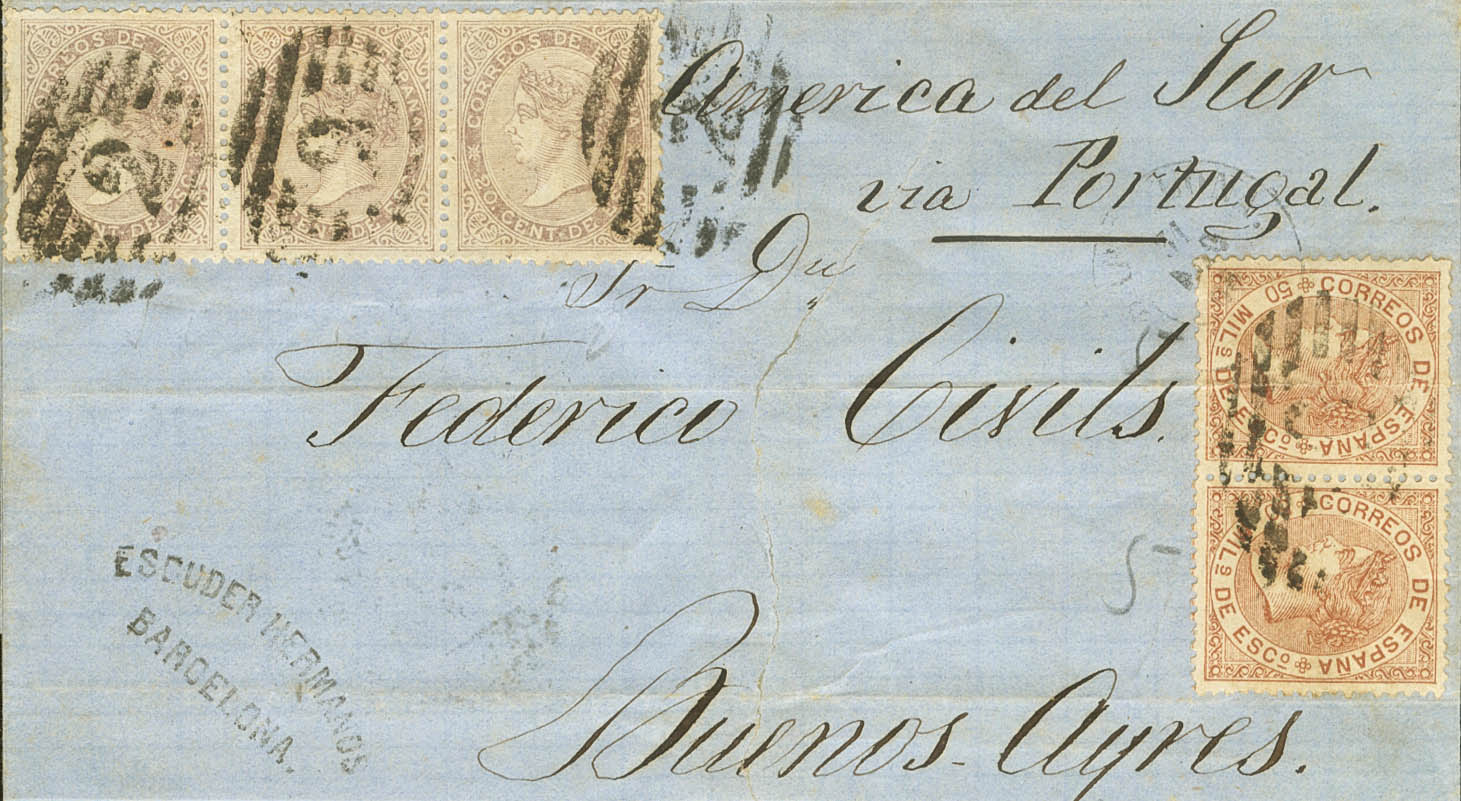 CORREOS DE ESPAÑA
CORREOS DE ESPAÑA
* CORREOS DE
* 20 CENT. DE
America del Sur
via Portugal.
Sr Dn
Federico Civils.
Buenos-Ayres.
CORREOS DE ESPAÑA
50 MILs DE ESCo
CORREOS DE ESPAÑA
MILs DE ESCo
5
ESCUDER HERMANOS
BARCELONA.